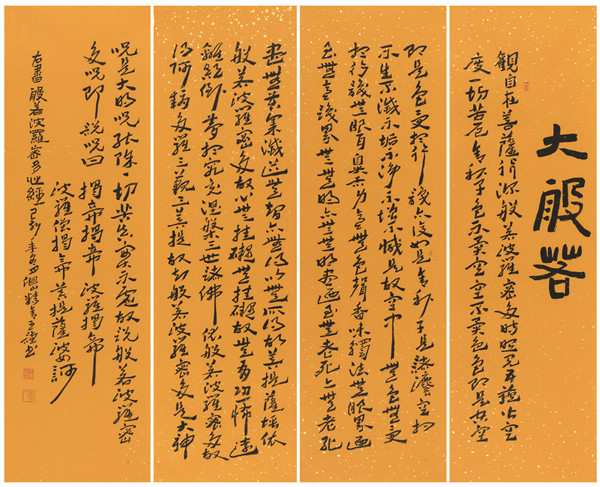 大般若
觀自在菩薩行深般若波羅蜜多時照見五蘊皆空
度一切苦厄舍利子色不異空空不異色色即是空空
即是色受想行識亦復如是舍利子是諸法空相
不生不滅不垢不淨不增不減是故空中無色無受
想行識無眼耳鼻舌身意無色聲香味觸法無眼界乃
至無意識界無無明亦無無明盡乃至無老死亦無老死
盡無苦集滅道無智亦無得以無所得故菩提薩埵依
般若波羅蜜多故心無罣礙無罣礙故無有恐怖遠
離顛倒夢想究竟涅槃三世諸佛依般若波羅蜜多故
得阿耨多羅三藐三菩提故知般若波羅蜜多是大神
咒是大明咒能除一切苦真實不虛故說般若波羅蜜
多咒即說咒曰揭帝揭帝波羅揭帝
波羅僧揭帝菩提薩婆訶
右書般若波羅蜜多心經己卯年冬書